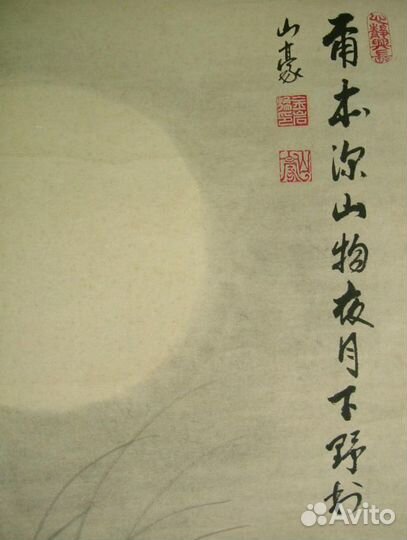 爾本深山物夜月下野村
山豪
Avito